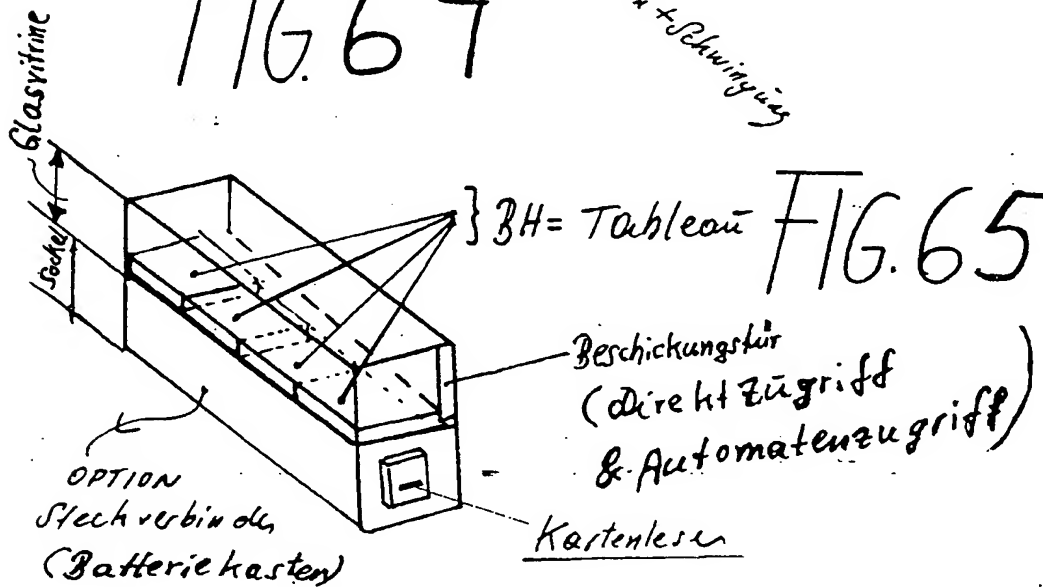 FIG. 64
+ Schwingung
Glasvitrine
Sockel
} BH = Tableau
FIG. 65
Beschickungstür
(Direktzugriff
& Automatenzugriff)
OPTION
Steckverbinder
(Batteriekasten)
Kartenleser